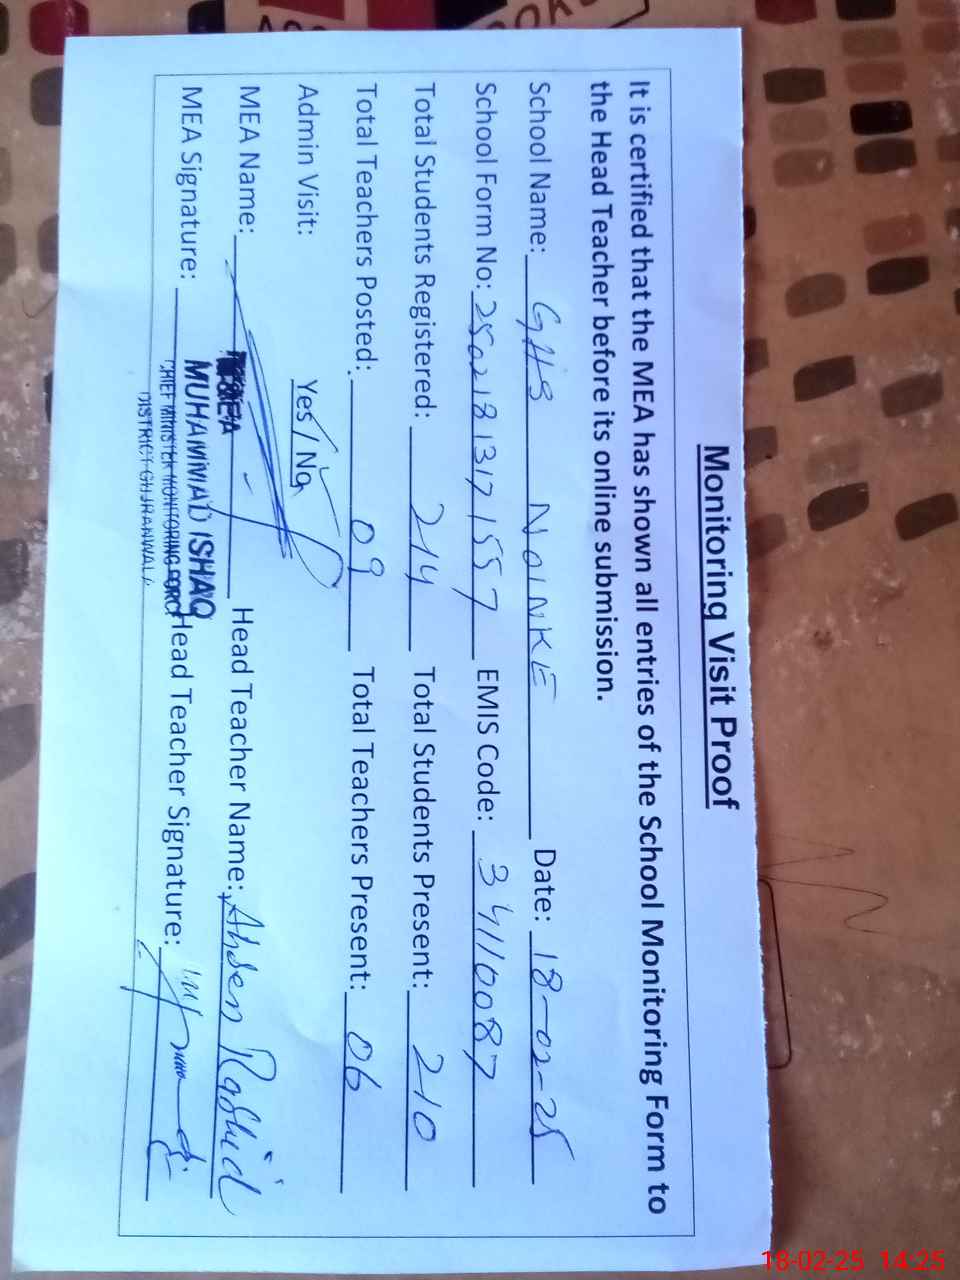 Monitoring Visit Proof
It is certified that the MEA has shown all entries of the School Monitoring Form to
the Head Teacher before its online submission.
School Name: GHS NOINKE Date: 18-02-25
School Form No: 2502181317157 EMIS Code: 34110087
Total Students Registered: 214 Total Students Present: 210
Total Teachers Posted: 09 Total Teachers Present: 06
Admin Visit: Yes / No
MEA Name: Head Teacher Name: Ahsen Rashid
MEA Signature: Head Teacher Signature:
MEA
MUHAMMAD ISHAQ
CHIEF MINISTER MONITORING FORCE
DISTRICT GUJRANWALA
18-02-25 14:25